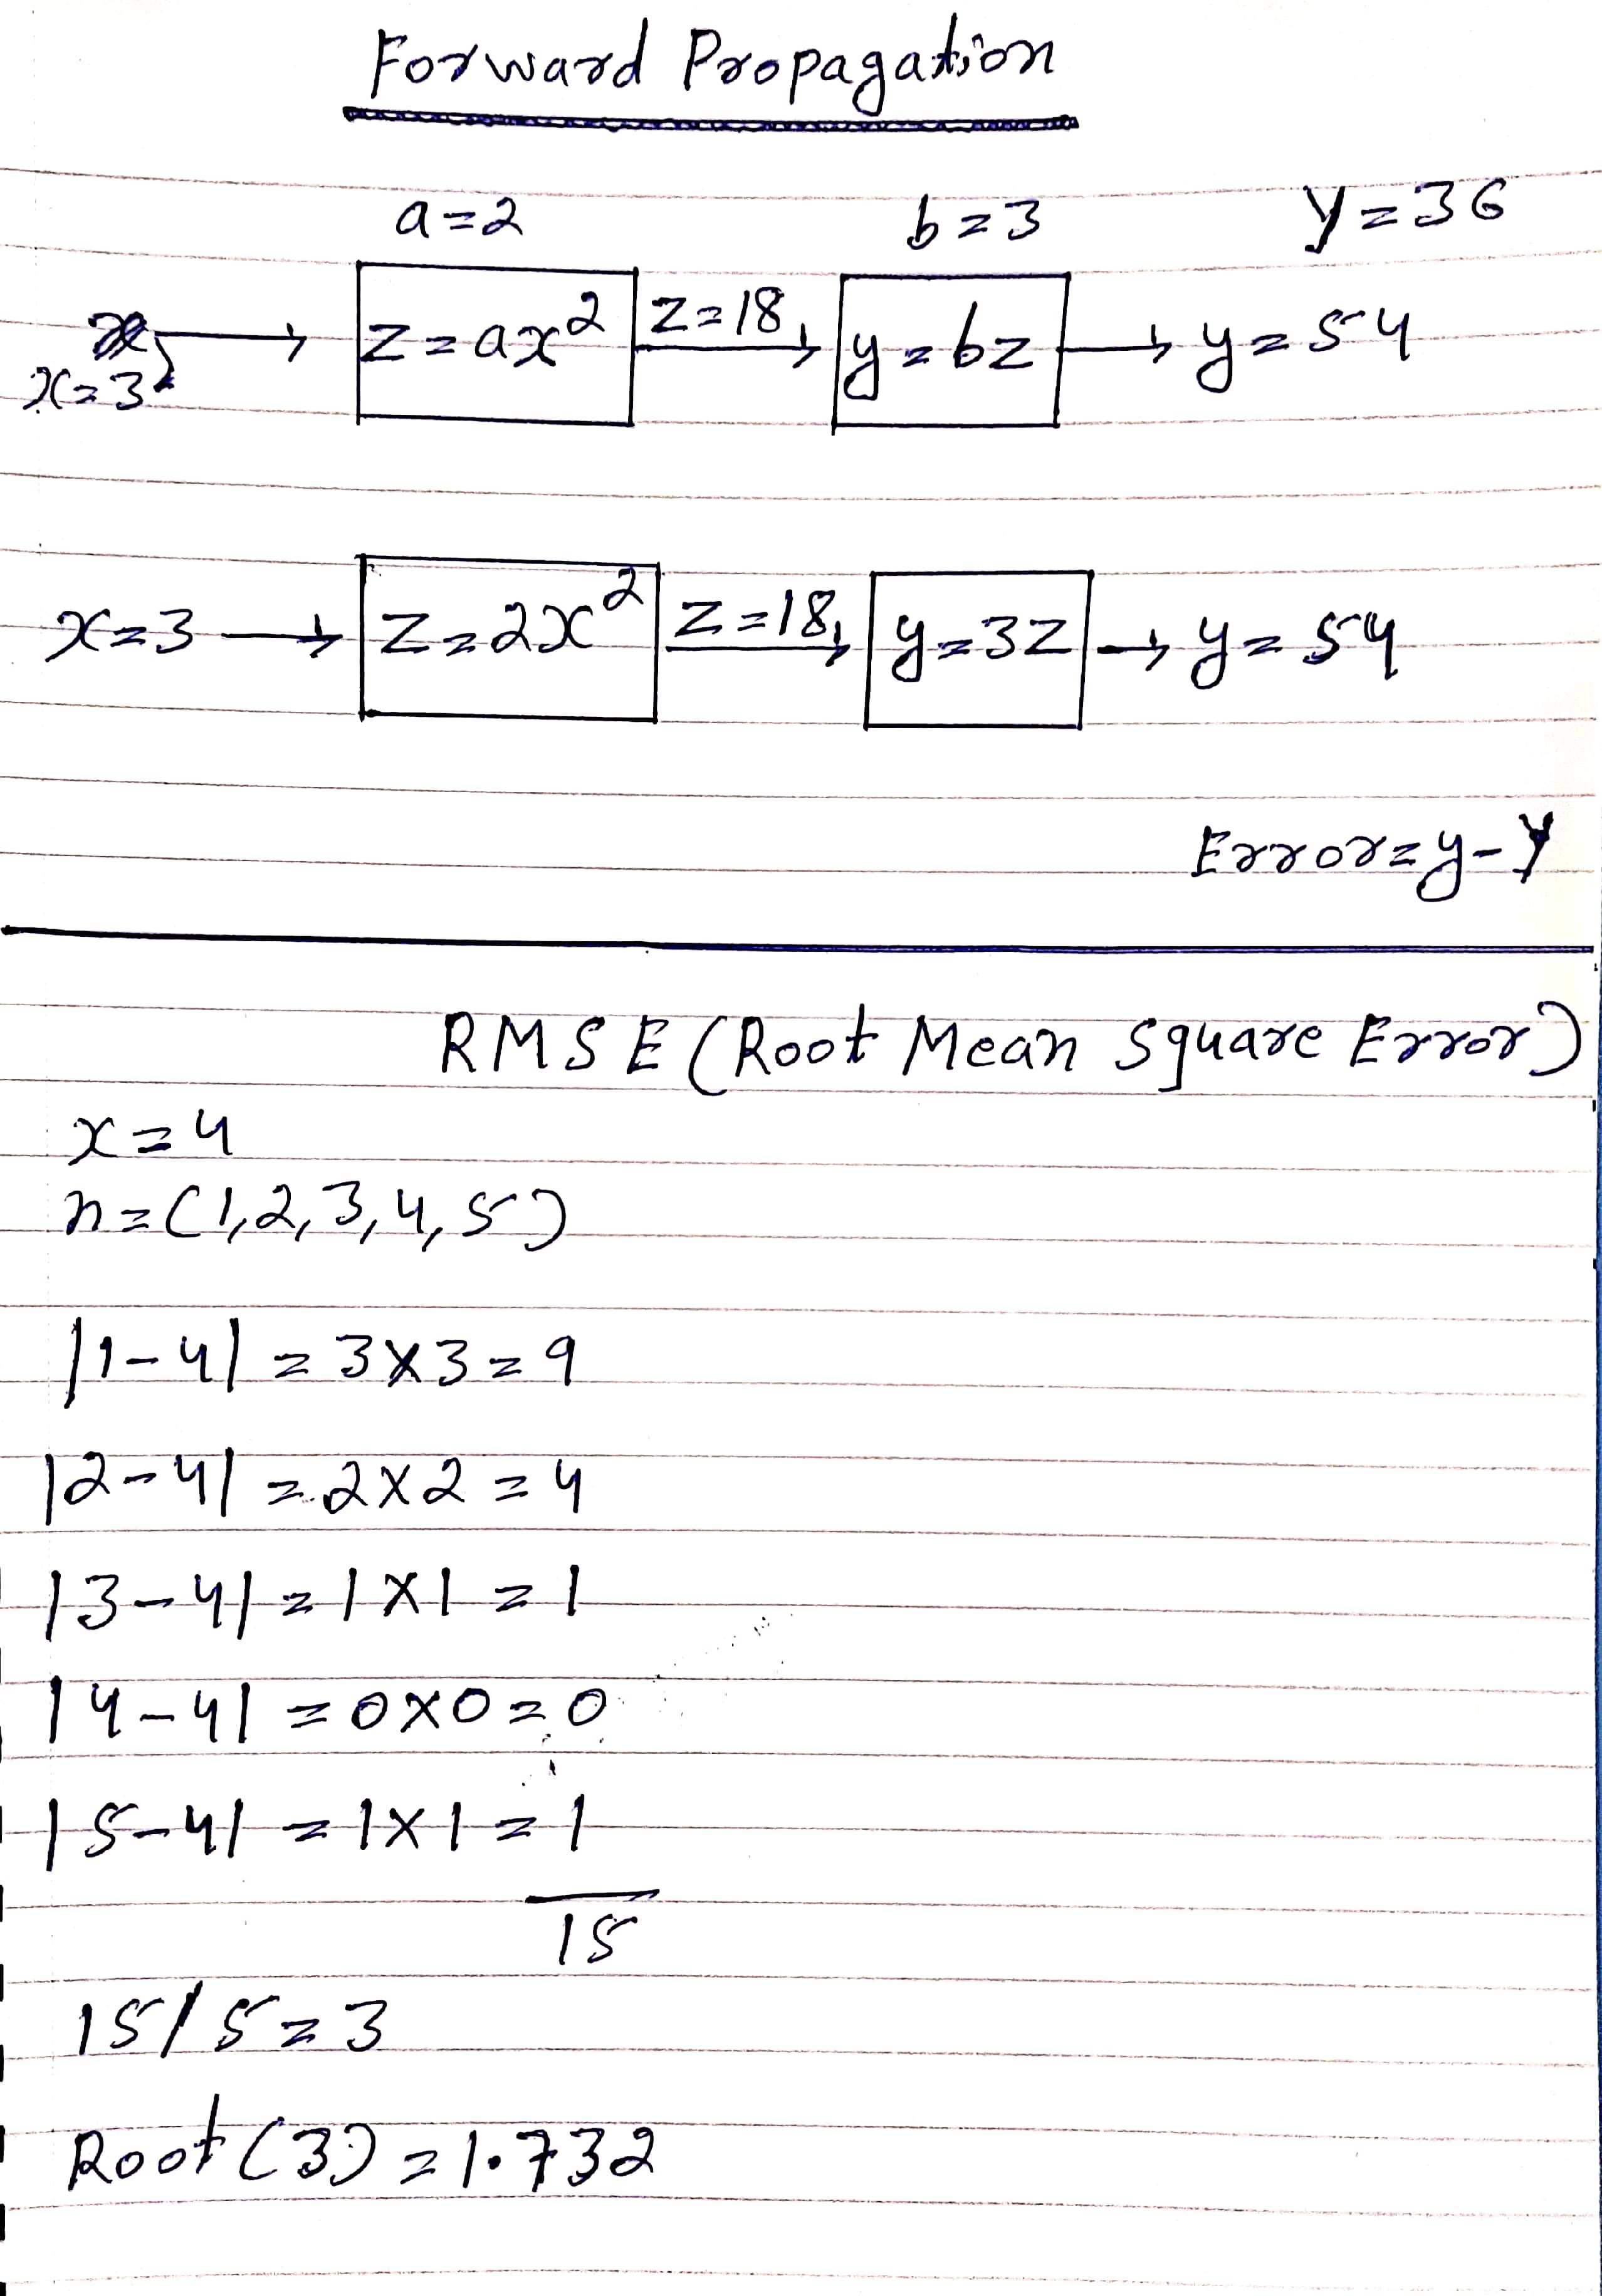 Forward Propagation
a=2 b=3 Y=36
x=3 → z=ax² z=18 → y=bz → y=54
x=3 → z=2x² z=18 → y=3z → y=54
Error=y-Y
RMSE (Root Mean Square Error)
x=4
n=(1,2,3,4,5)
|1-4| = 3×3=9
|2-4| = 2×2=4
|3-4| = 1×1=1
|4-4| = 0×0=0
|5-4| = 1×1=1
15
15/5=3
Root(3)=1.732